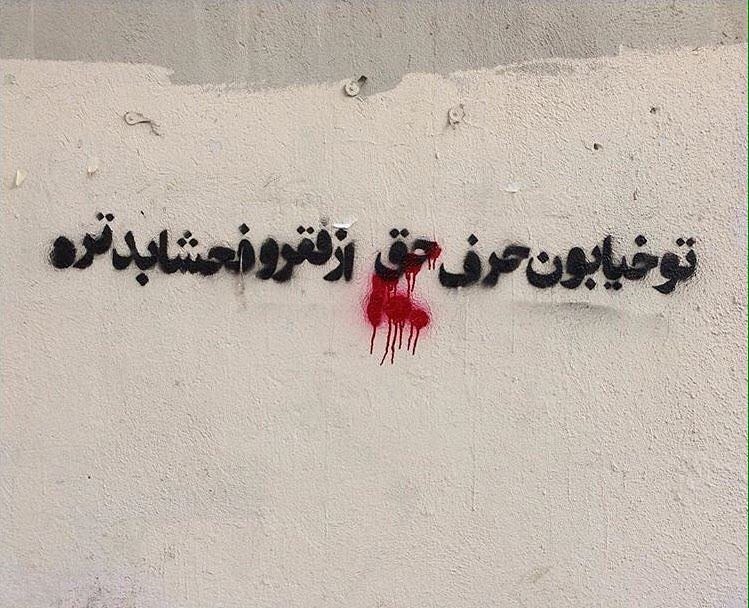 تو خیابون حرف حق از فقر و فحشا بدتره